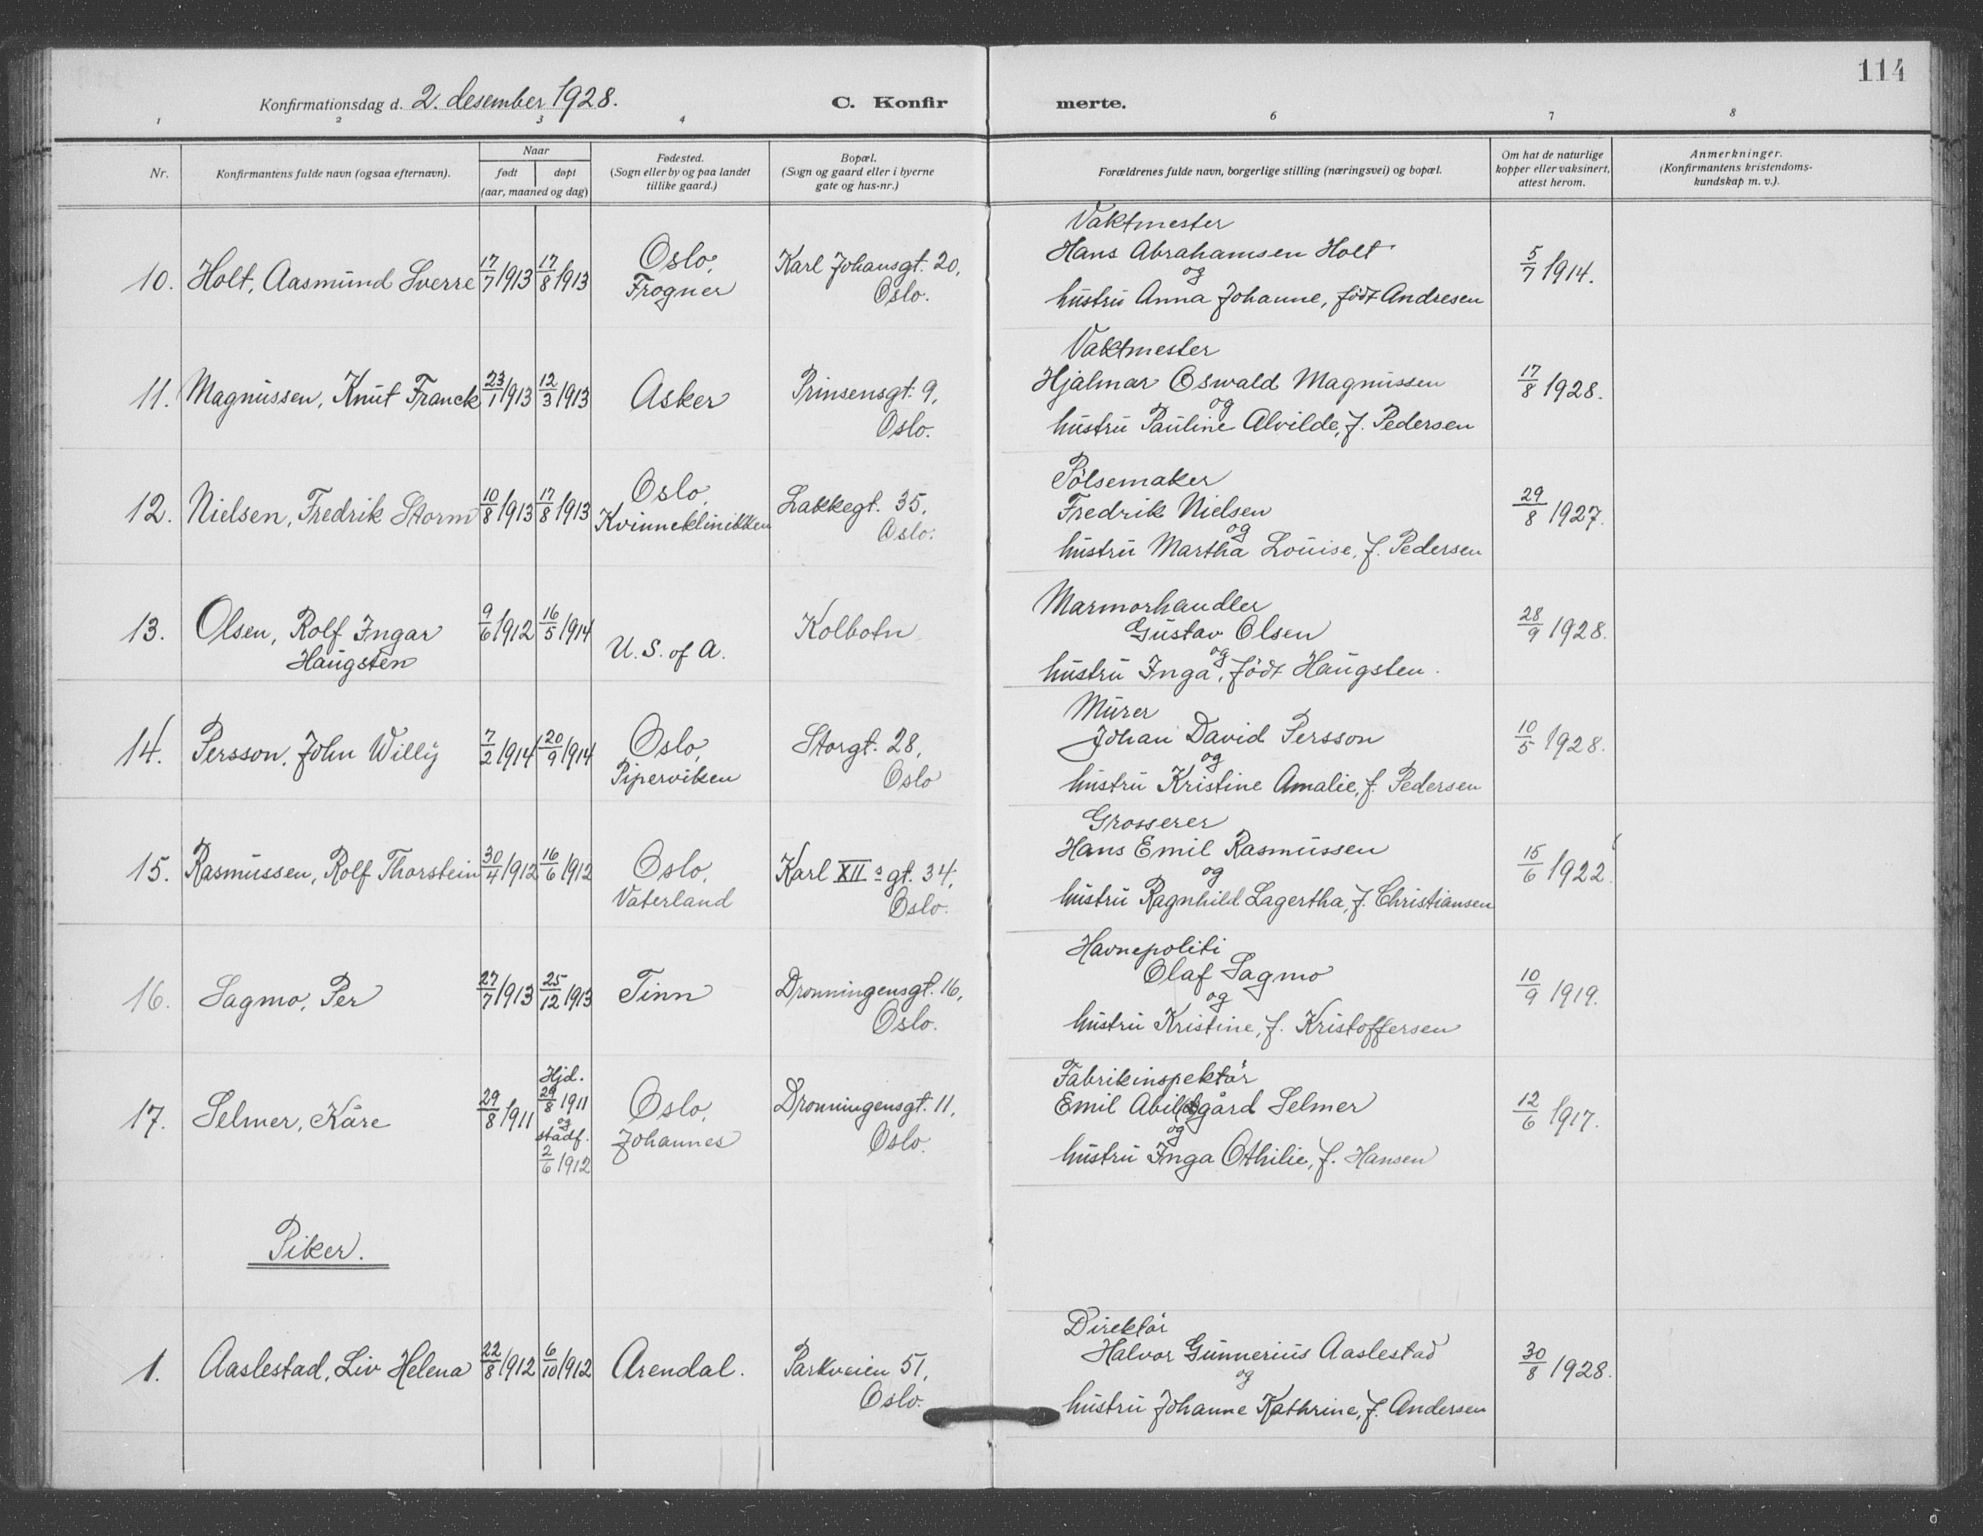 114
Konfirmationsdag d. 2. desember 1928.
C. Konfir
merte.
1 2 3 4 6 7 8
Nr.
Konfirmantens fulde navn (ogsaa efternavn).
Naar
født
døpt
(aar, maaned og dag)
Fødested.
(Sogn eller by og paa landet
tillike gaard.)
Bopæl.
(Sogn og gaard eller i byerne
gate og hus-nr.)
Forældrenes fulde navn, borgerlige stilling (næringsvei) og bopæl.
Om hat de naturlige
kopper eller vaksinert,
attest herom.
Anmerkninger.
(Konfirmantens kristendoms-
kundskap m. v.).
10. Holt, Aasmund Sverre 17/7 1913 17/8 1913
Oslo,
Frogner
Karl Johansgt. 20,
Oslo.
Vaktmester
Hans Abrahamsen Holt
og
hustru Anna Johanne, født Andresen
5/7 1914.
11. Magnussen, Knut Franck 23/1 1913 12/3 1913
Asker
Prinsensgt. 9,
Oslo.
Vaktmester
Hjalmar Oswald Magnussen
og
hustru Pauline Alvilde, f. Pedersen
17/8 1928.
12. Nielsen, Fredrik Storm 10/8 1913 17/8 1913
Oslo,
Kvinneklinikken
Lakkegt. 35,
Oslo.
Pölsemaker
Fredrik Nielsen
og
hustru Martha Louise, f. Pedersen
29/8 1927.
13. Olsen, Rolf Ingar
Haugsten
9/6 1912 16/5 1914
U. S. of A.
Kolbotn
Marmorhandler
Gustav Olsen
og
hustru Inga, født Haugsten.
28/9 1928.
14. Persson, John Willy 7/2 1914 20/9 1914
Oslo,
Piperviken
Storgt. 28,
Oslo
Murer
Johan David Persson
og
hustru Kristine Amalie, f. Pedersen
10/5 1928.
15. Rasmussen, Rolf Thorstein 30/4 1912 16/6 1912
Oslo,
Vaterland
Karl XII s gt. 34,
Oslo.
Grosserer
Hans Emil Rasmussen
og
hustru Ragnhild Lagertha, f. Christiansen
15/6 1922.
16. Sagmo, Per 27/7 1913 25/12 1913
Tinn
Dronningensgt. 16,
Oslo.
Havnepoliti
Olaf Sagmo
og
hustru Kristine, f. Kristoffersen
10/9 1919.
17. Selmer, Kåre 29/8 1911
Hjd.
29/8 1911
og
stadf.
2/6 1912
Oslo,
Johannes
Dronningensgt. 11,
Oslo.
Fabrikinspektør
Emil Abildgård Selmer
og
hustru Inga Othilie, f. Hansen
12/6 1917.
Piker.
1. Aaslestad, Liv Helena 22/8 1912 6/10 1912
Arendal.
Parkveien 51,
Oslo.
Direktør
Halvor Gunnerius Aaslestad
og
hustru Johanne Kathrine, f. Andersen
30/8 1928.